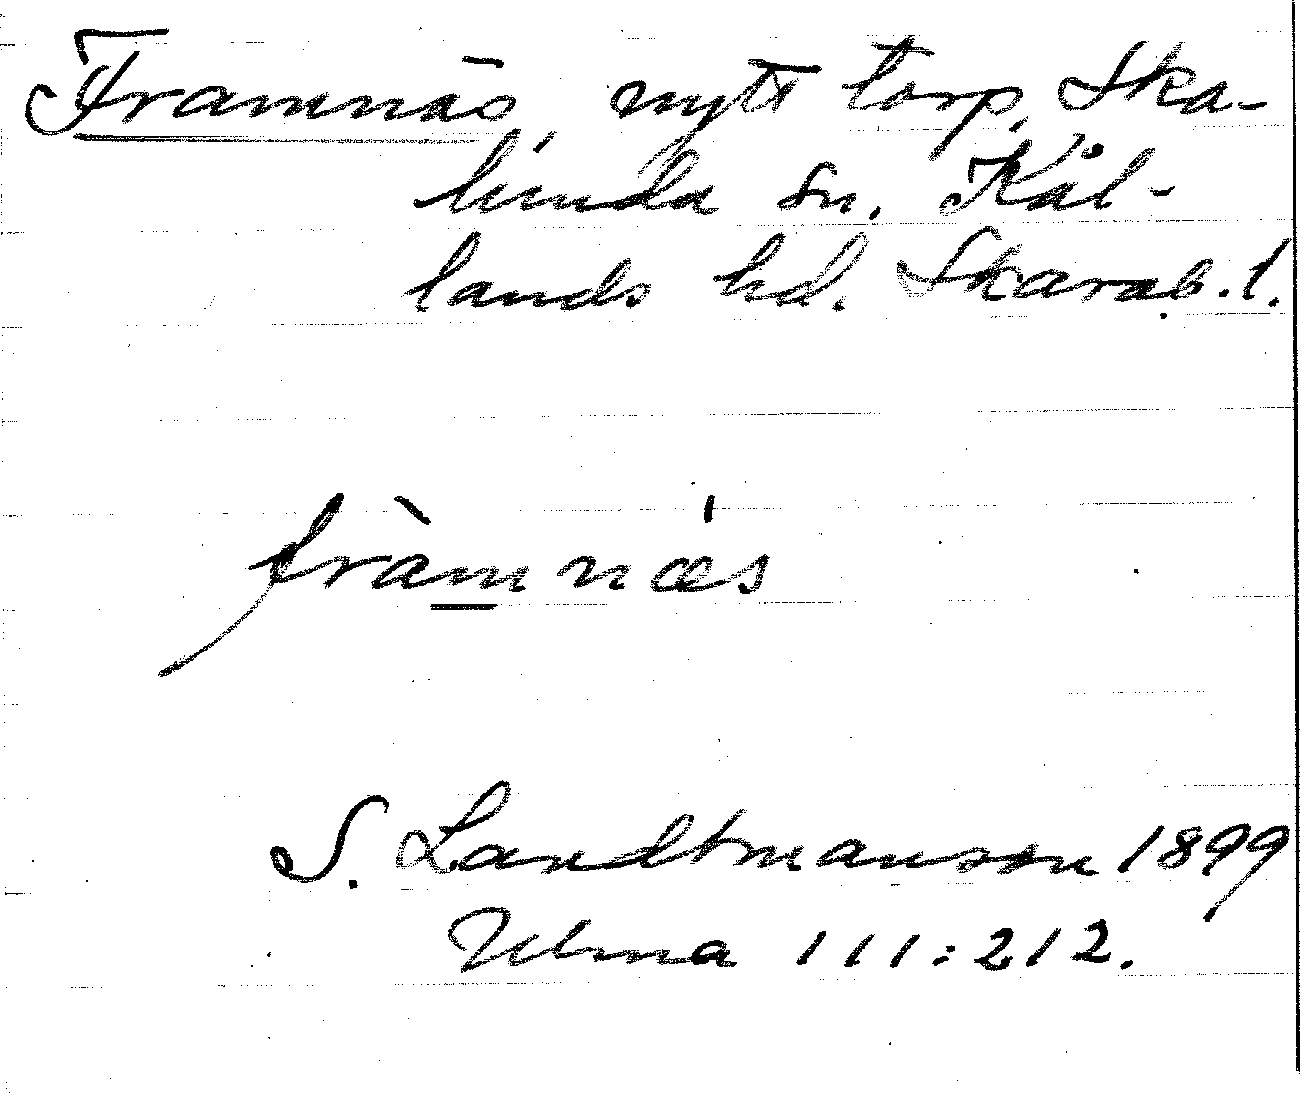 Framnäs, nytt torp, Ska-
lunda sn. Kål-
lands hd. Skarab. l.
fràm næ's
S. Landtmanson 1899
Ulma 111:212.